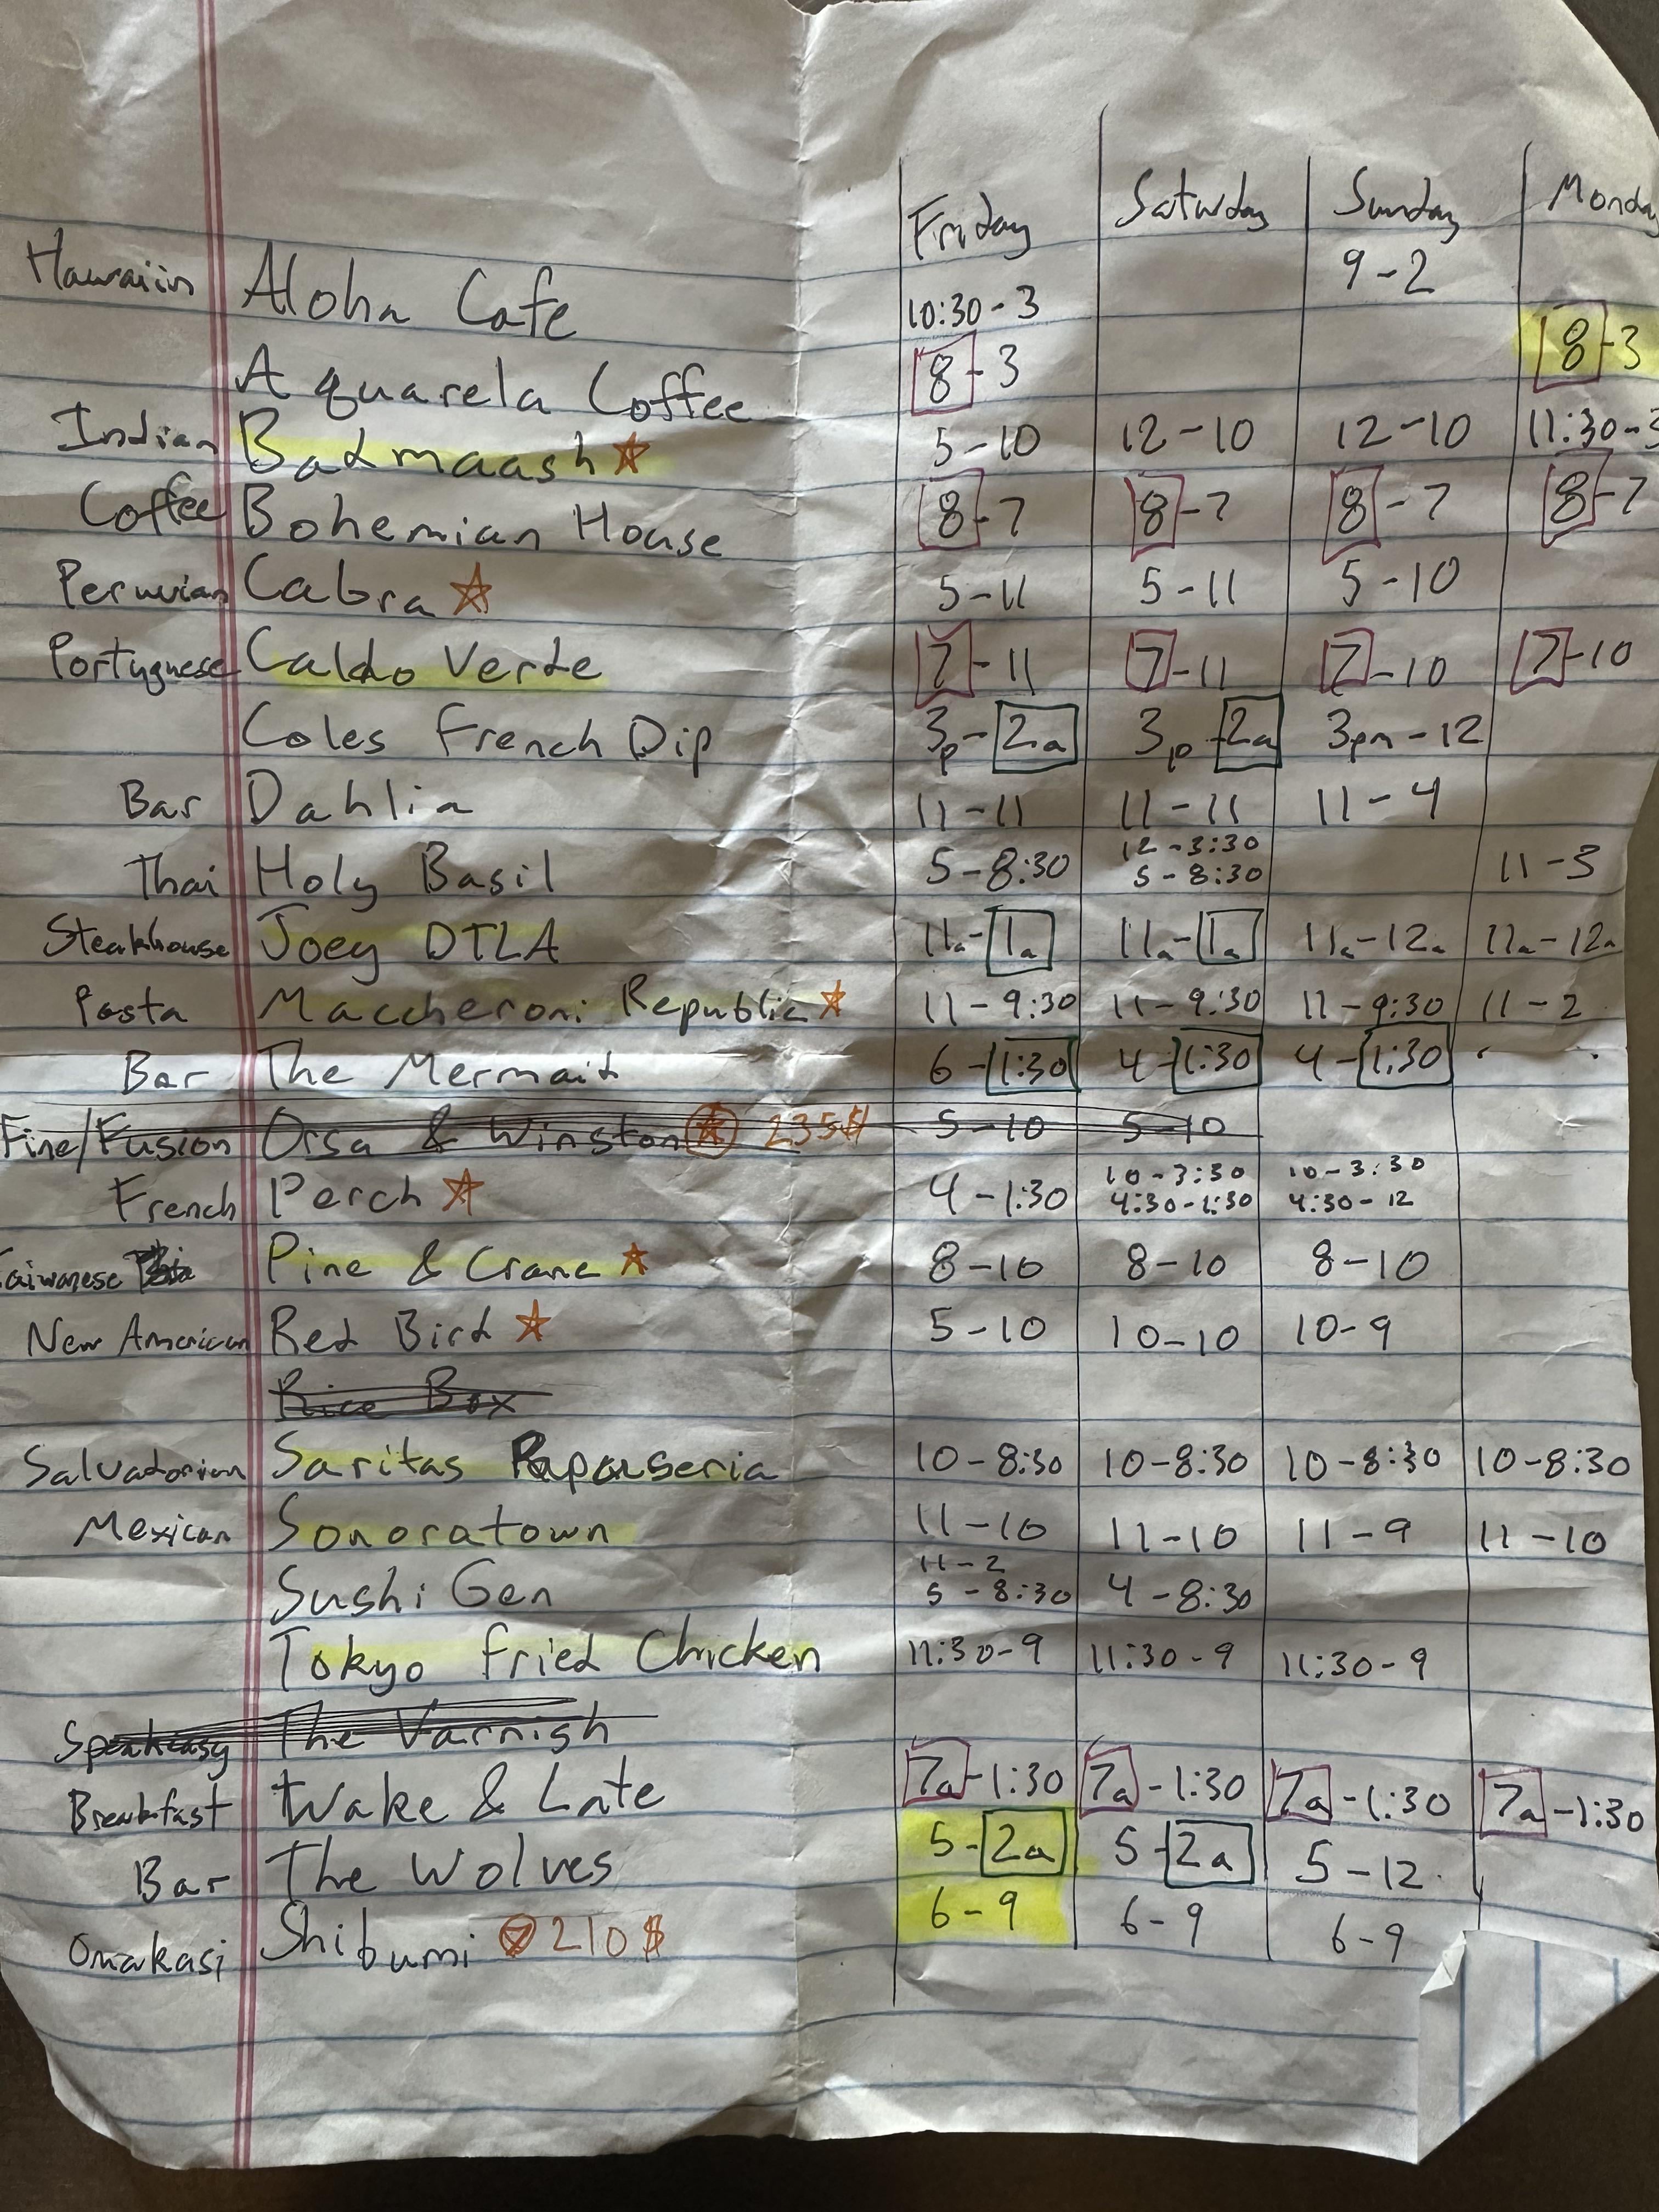 Friday Saturday Sunday Monday
Hawaiin Aloha Cafe 10:30 - 3 9 - 2
Aquarela Coffee 8 - 3 8 - 3
Indian Badmaash 5 - 10 12 - 10 12 - 10 11:30 - 3
Coffee Bohemian House 8 - 7 8 - 7 8 - 7 8 - 7
Peruvian Cabra 5 - 11 5 - 11 5 - 10
Portuguese Caldo Verde 7 - 11 7 - 11 7 - 10 7 - 10
Coles French Dip 3p - 2a 3p - 2a 3pm - 12
Bar Dahlia 11 - 11 11 - 11 11 - 4
12 - 3:30
Thai Holy Basil 5 - 8:30 5 - 8:30 11 - 3
Steakhouse Joey DTLA 11a - 1a 11a - 1a 11a - 12a 11a - 12a
Pasta Maccheroni Republic 11 - 9:30 11 - 9:30 11 - 9:30 11 - 2
Bar The Mermaid 6 - 1:30 4 - 1:30 4 - 1:30
Fine/Fusion Orsa & Winston 235$ 5 - 10 5 - 10
10 - 3:30 10 - 3:30
French Perch 4 - 1:30 4:30 - 1:30 4:30 - 12
Taiwanese Pine & Crane 8 - 10 8 - 10 8 - 10
New American Red Bird 5 - 10 10 - 10 10 - 9
Rice Box
Salvadorian Saritas Papauseria 10 - 8:30 10 - 8:30 10 - 8:30 10 - 8:30
Mexican Sonoratown 11 - 10 11 - 10 11 - 9 11 - 10
11 - 2
Sushi Gen 5 - 8:30 4 - 8:30
Tokyo Fried Chicken 11:30 - 9 11:30 - 9 11:30 - 9
Speakeasy The Varnish
Breakfast Wake & Late 7a - 1:30 7a - 1:30 7a - 1:30 7a - 1:30
Bar The Wolves 5 - 2a 5 - 2a 5 - 12
Omakasi Shibumi 210$ 6 - 9 6 - 9 6 - 9